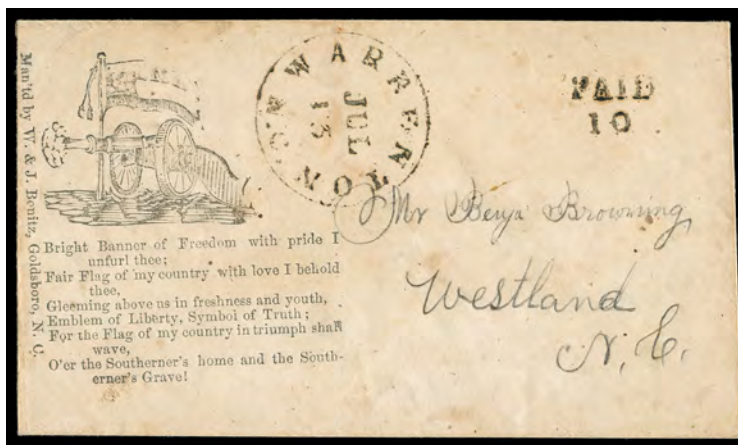 Man'd by W. & J. Bonitz, Goldsboro, N. C.
WARRENTON N.C.
JUL
13
PAID
10
Bright Banner of Freedom with pride I
unfurl thee;
Fair Flag of my country with love I behold
thee,
Gleeming above us in freshness and youth,
Emblem of Liberty, Symbol of Truth;
For the Flag of my country in triumph shall
wave,
O'er the Southerner's home and the South-
erner's Grave!
Mr Benja Browning
Westland
N. C.